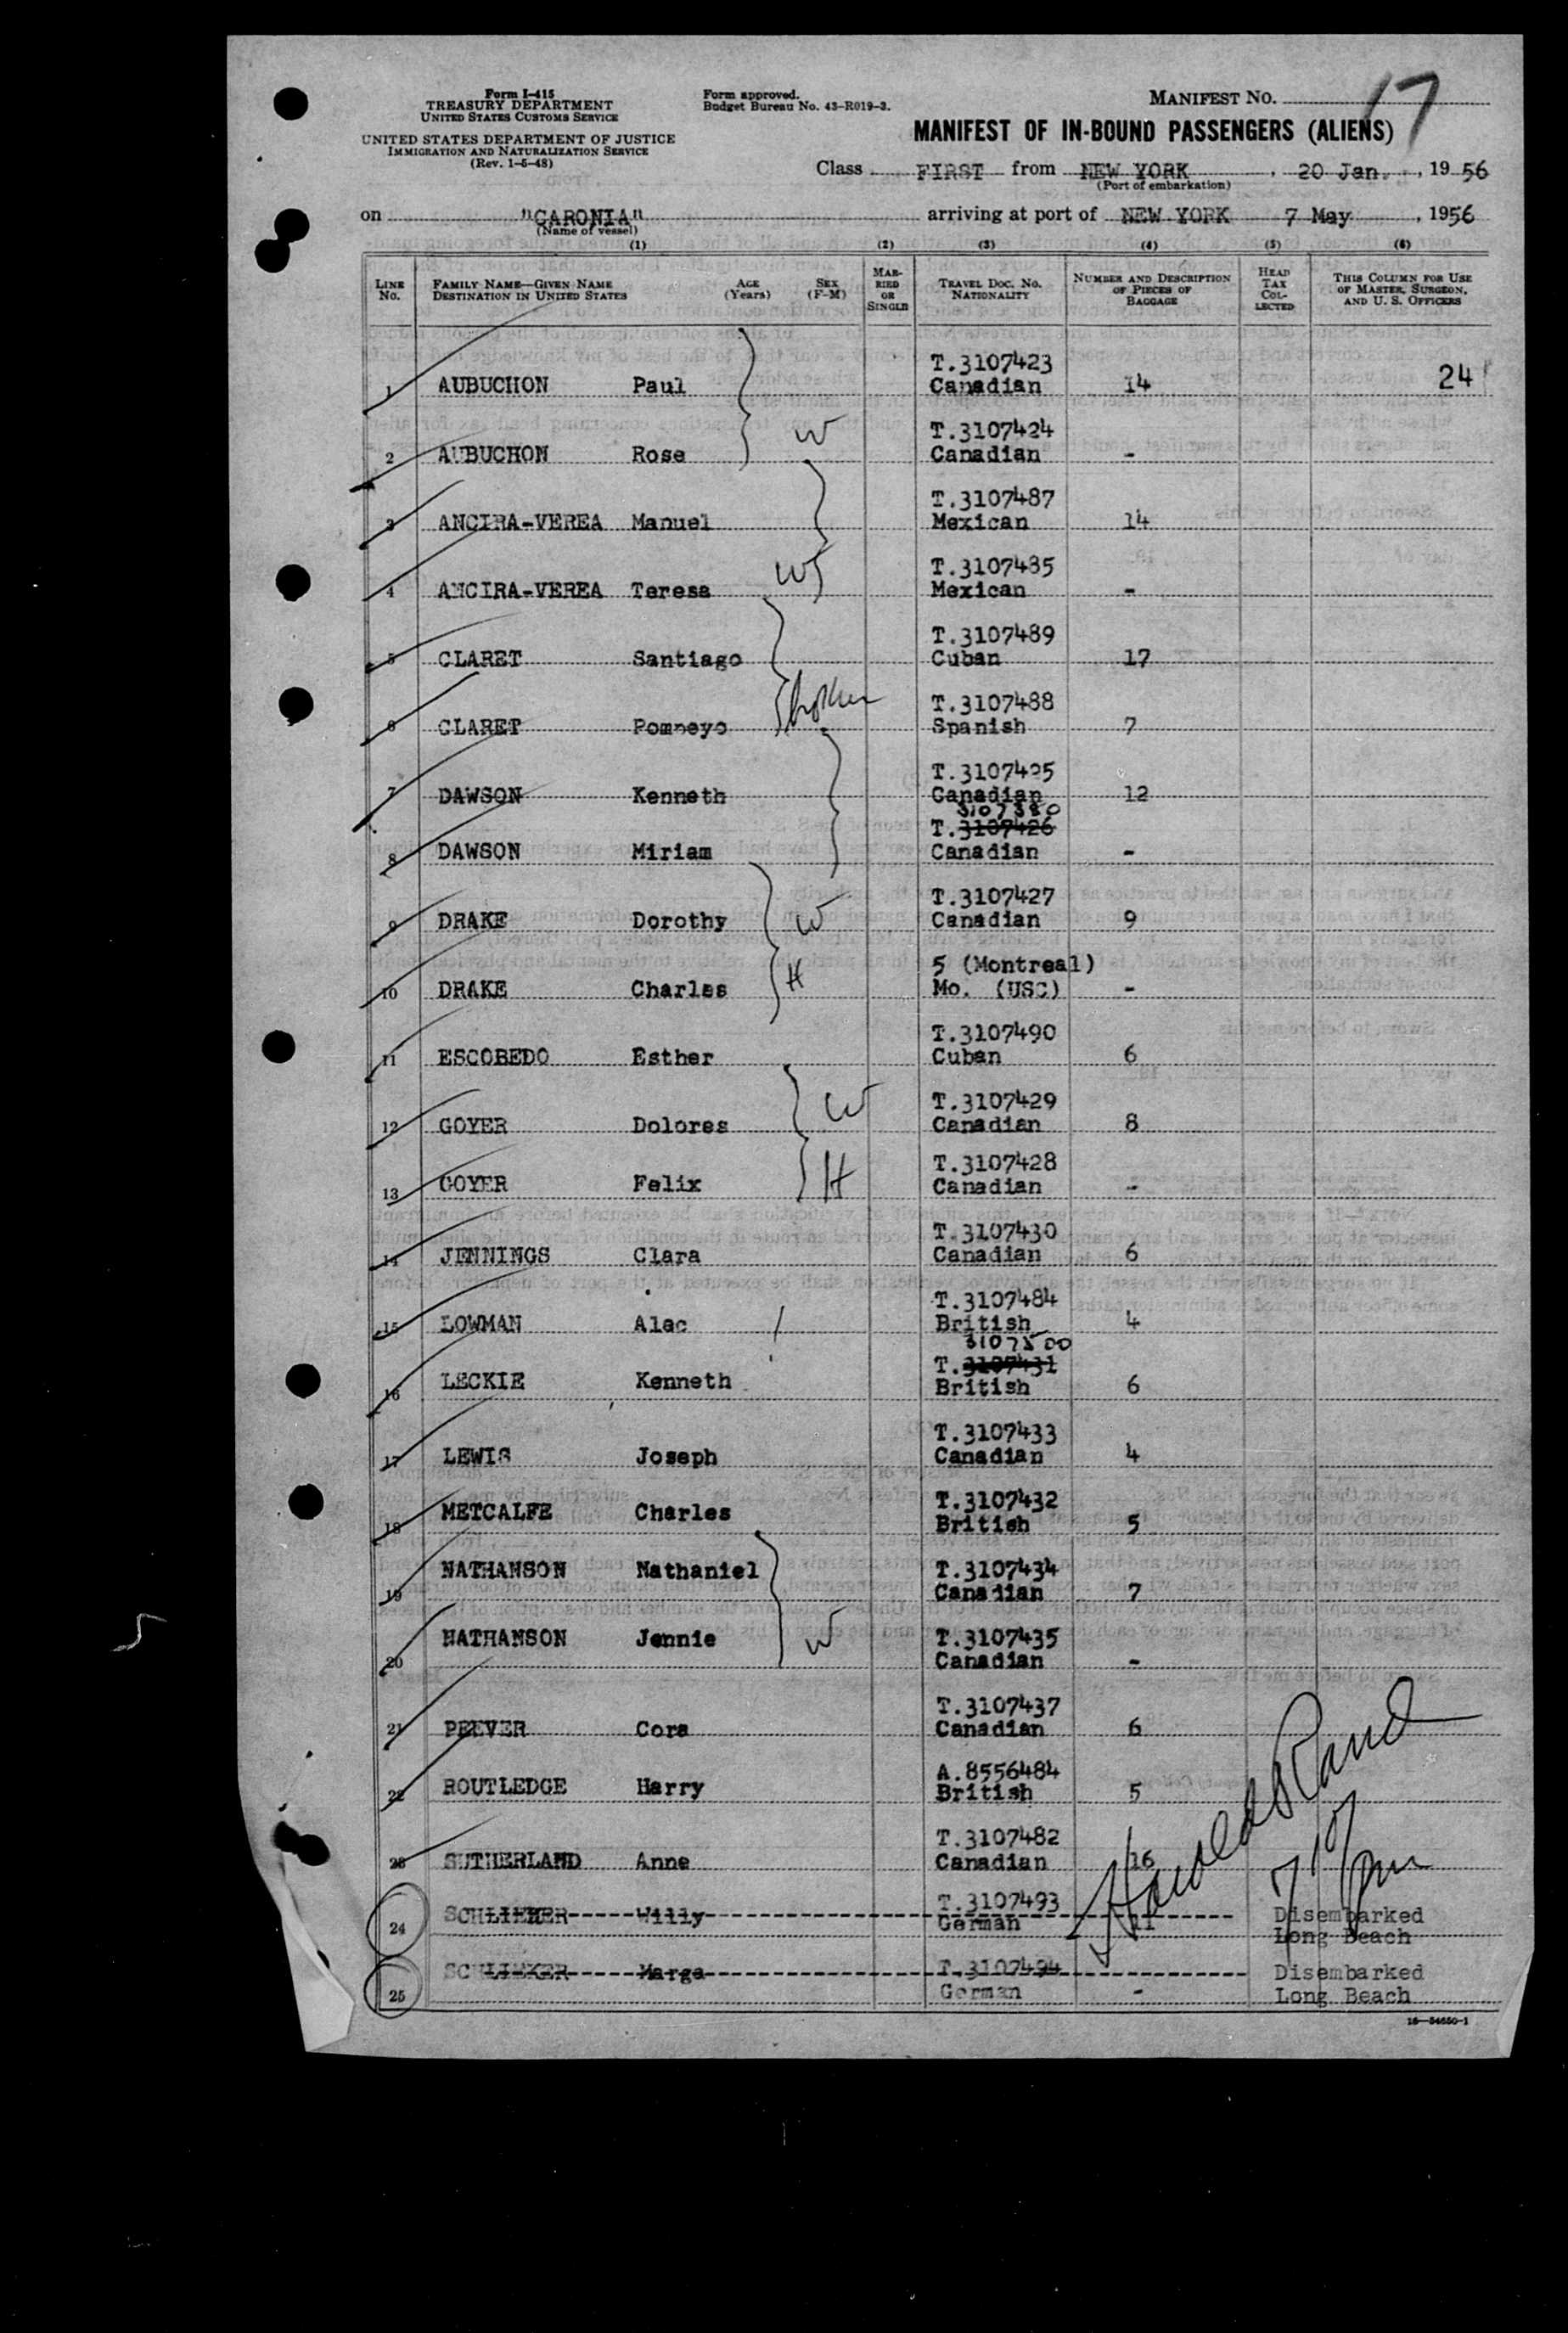 Form I-415
TREASURY DEPARTMENT
UNITED STATES CUSTOMS SERVICE
UNITED STATES DEPARTMENT OF JUSTICE
IMMIGRATION AND NATURALIZATION SERVICE
(Rev. 1-5-48)
Form approved.
Budget Bureau No. 43-R019-3.
MANIFEST NO. 17
MANIFEST OF IN-BOUND PASSENGERS (ALIENS)
Class FIRST from NEW YORK, 20 Jan., 1956
(Port of embarkation)
on "CARONIA" arriving at port of NEW YORK 7 May, 1956
(Name of vessel)
(1) (2) (3) (4) (5) (6)
LINE NO. FAMILY NAME—GIVEN NAME DESTINATION IN UNITED STATES AGE (Years) SEX (F-M) MARRIED OR SINGLE TRAVEL DOC. NO. NATIONALITY NUMBER AND DESCRIPTION OF PIECES OF BAGGAGE HEAD TAX COLLECTED THIS COLUMN FOR USE OF MASTER, SURGEON, AND U. S. OFFICERS
T.3107423
1 AUBUCHON Paul Canadian 14 24
T.3107424
2 AUBUCHON Rose W Canadian -
T.3107487
3 ANCIRA-VEREA Manuel Mexican 14
T.3107485
4 ANCIRA-VEREA Teresa W Mexican -
T.3107489
5 CLARET Santiago Cuban 17
T.3107488
6 CLARET Pompeyo brother Spanish 7
T.3107425
7 DAWSON Kenneth Canadian 12
3107380
T.3107426
8 DAWSON Miriam Canadian -
T.3107427
9 DRAKE Dorothy W Canadian 9
5 (Montreal)
10 DRAKE Charles H Mo. (USC) -
T.3107490
11 ESCOBEDO Esther Cuban 6
T.3107429
12 GOYER Dolores W Canadian 8
T.3107428
13 GOYER Felix H Canadian -
T.3107430
14 JENNINGS Clara Canadian 6
T.3107484
15 LOWMAN Alec British 4
3107500
T.3107431
16 LECKIE Kenneth British 6
T.3107433
17 LEWIS Joseph Canadian 4
T.3107432
18 METCALFE Charles British 5
T.3107434
19 NATHANSON Nathaniel Canadian 7
T.3107435
20 NATHANSON Jennie W Canadian -
T.3107437
21 PEEVER Cora Canadian 6
A.8556484
22 ROUTLEDGE Harry British 5
T.3107482
23 SUTHERLAND Anne Canadian 16
Harold Rand
T.3107493
24 SCHLIEKER Willy German 11 Disembarked Long Beach
T.3107494
25 SCHLIEKER Marga German - Disembarked Long Beach
16—54650-1